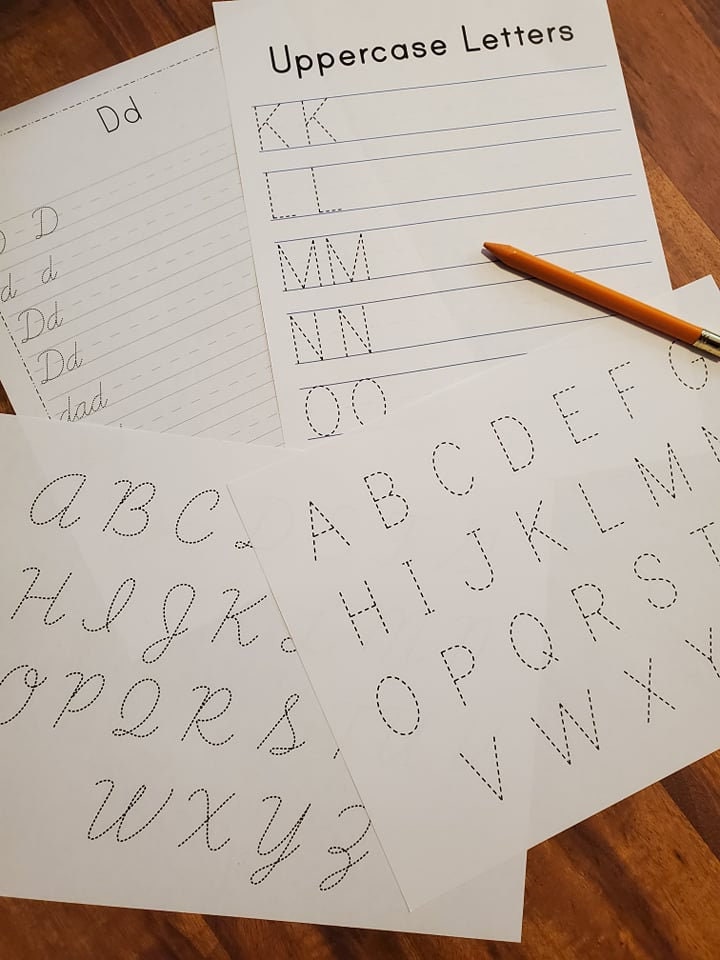 Dd
D D
d d
Dd
Dd
dad
Uppercase Letters
K K
L L
M M
N N
O O
A B C
H I J K
O P Q R S
W X Y Z
A B C D E F G
H I J K L M N
O P Q R S T
V W X Y